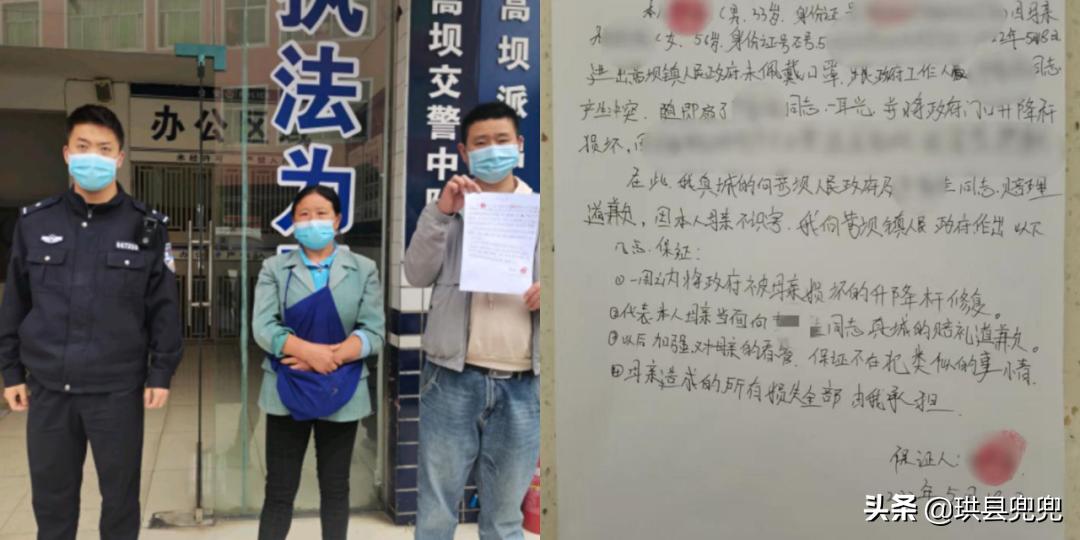 执法为
高坝交警中队
高坝派
办公区
未经许可
667359
本人 (男，33岁，身份证号 ）因母亲
(女，56岁，身份证号 5 2年5月8日
进出高坝镇人民政府未佩戴口罩，与政府工作人员 同志
产生冲突，随即扇了 同志一耳光，并将政府门口升降杆
损坏，
在此，我真城的向高坝人民政府及 同志赔理
道歉，因本人母亲不识字，我向高坝镇人民政府作出以下
几点保证：
①一周之内将政府被母亲损坏的升降杆修复。
②代表本人母亲当面向 同志真城的赔礼道歉。
③以后加强对母亲的看管，保证不在犯类似的事小青.
④母亲造成的所有损失全部由我承担.
保证人：
年5月
头条 @珙县兜兜